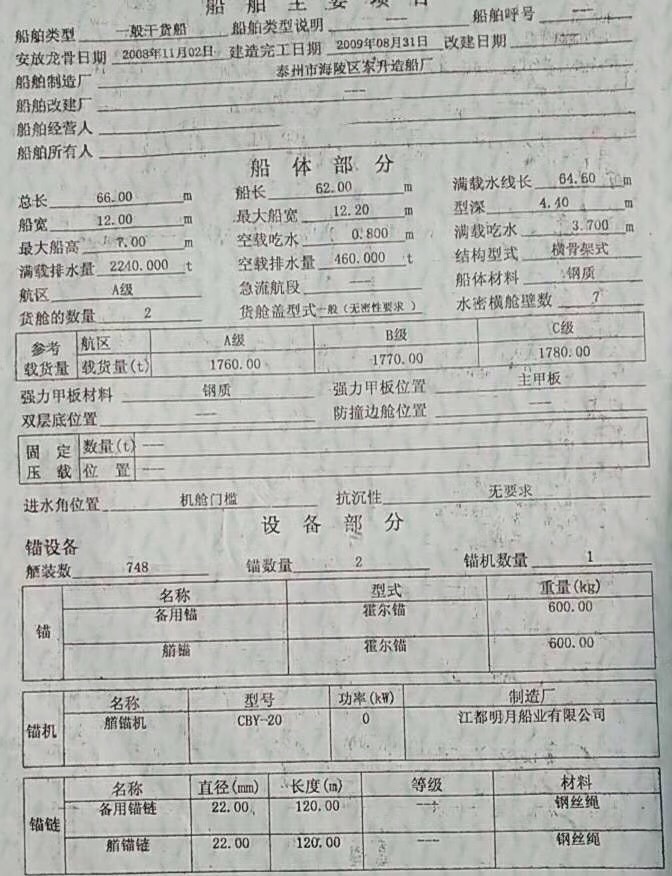 船舶主要项目
船舶类型 一般干货船 船舶类型说明 --- 船舶呼号 ---
安放龙骨日期 2008年11月02日 建造完工日期 2009年08月31日 改建日期 ---
船舶制造厂 泰州市海陵区东升造船厂
船舶改建厂 ---
船舶经营人
船舶所有人
船体部分
总长 66.00 m 船长 62.00 m 满载水线长 64.60 m
船宽 12.00 m 最大船宽 12.20 m 型深 4.40 m
最大船高 7.00 m 空载吃水 0.800 m 满载吃水 3.700 m
满载排水量 2240.000 t 空载排水量 460.000 t 结构型式 横骨架式
航区 A级 急流航段 --- 船体材料 钢质
货舱的数量 2 货舱盖型式 一般（无密性要求） 水密横舱壁数 7
参考载货量 航区 A级 B级 C级
载货量(t) 1760.00 1770.00 1780.00
强力甲板材料 钢质 强力甲板位置 主甲板
双层底位置 --- 防撞边舱位置 ---
固定压载 数量(t) ---
位置 ---
进水角位置 机舱门槛 抗沉性 无要求
设备部分
锚设备
舾装数 748 锚数量 2 锚机数量 1
锚 名称 型式 重量(kg)
备用锚 霍尔锚 600.00
艏锚 霍尔锚 600.00
锚机 名称 型号 功率(kW) 制造厂
艏锚机 CBY-20 0 江都明月船业有限公司
锚链 名称 直径(mm) 长度(m) 等级 材料
备用锚链 22.00 120.00 --- 钢丝绳
艏锚链 22.00 120.00 --- 钢丝绳